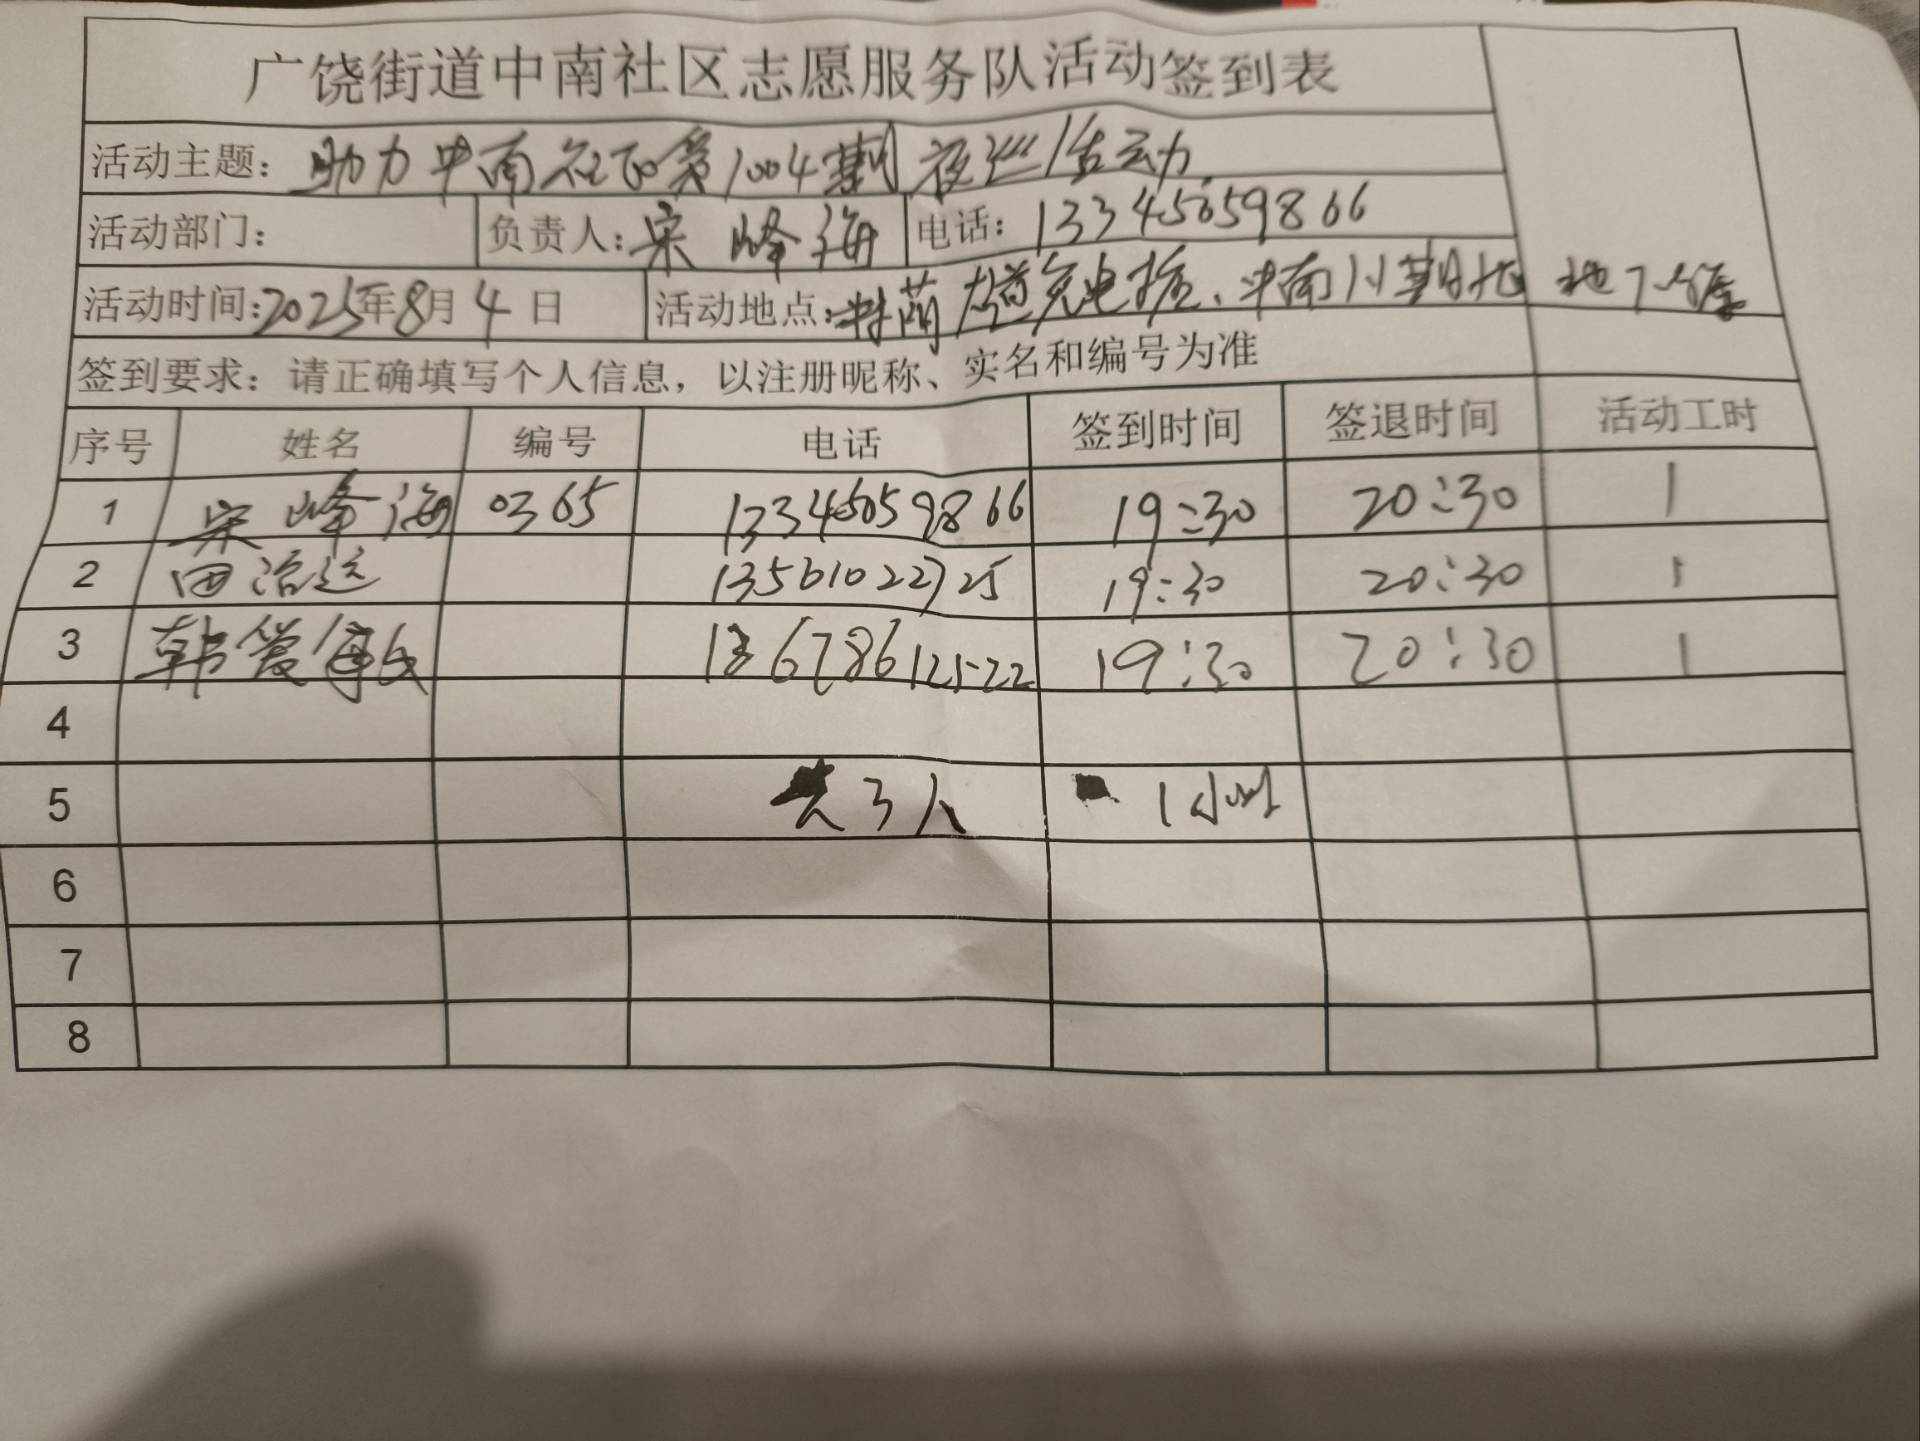 广饶街道中南社区志愿服务队活动签到表
活动主题：助力中南社区第1004期夜巡活动
活动部门： 负责人：宋峰海 电话：13345659866
活动时间：2025年8月4日 活动地点：大道充电桩、中南川期 地下
签到要求：请正确填写个人信息，以注册昵称、实名和编号为准
序号 姓名 编号 电话 签到时间 签退时间 活动工时
1 宋峰海 0365 19:30 20:30 1
2 田治远 13561022725 19:30 20:30 1
3 韩爱 19:30 20:30 1
4
5 3人 1小时
6
7
8